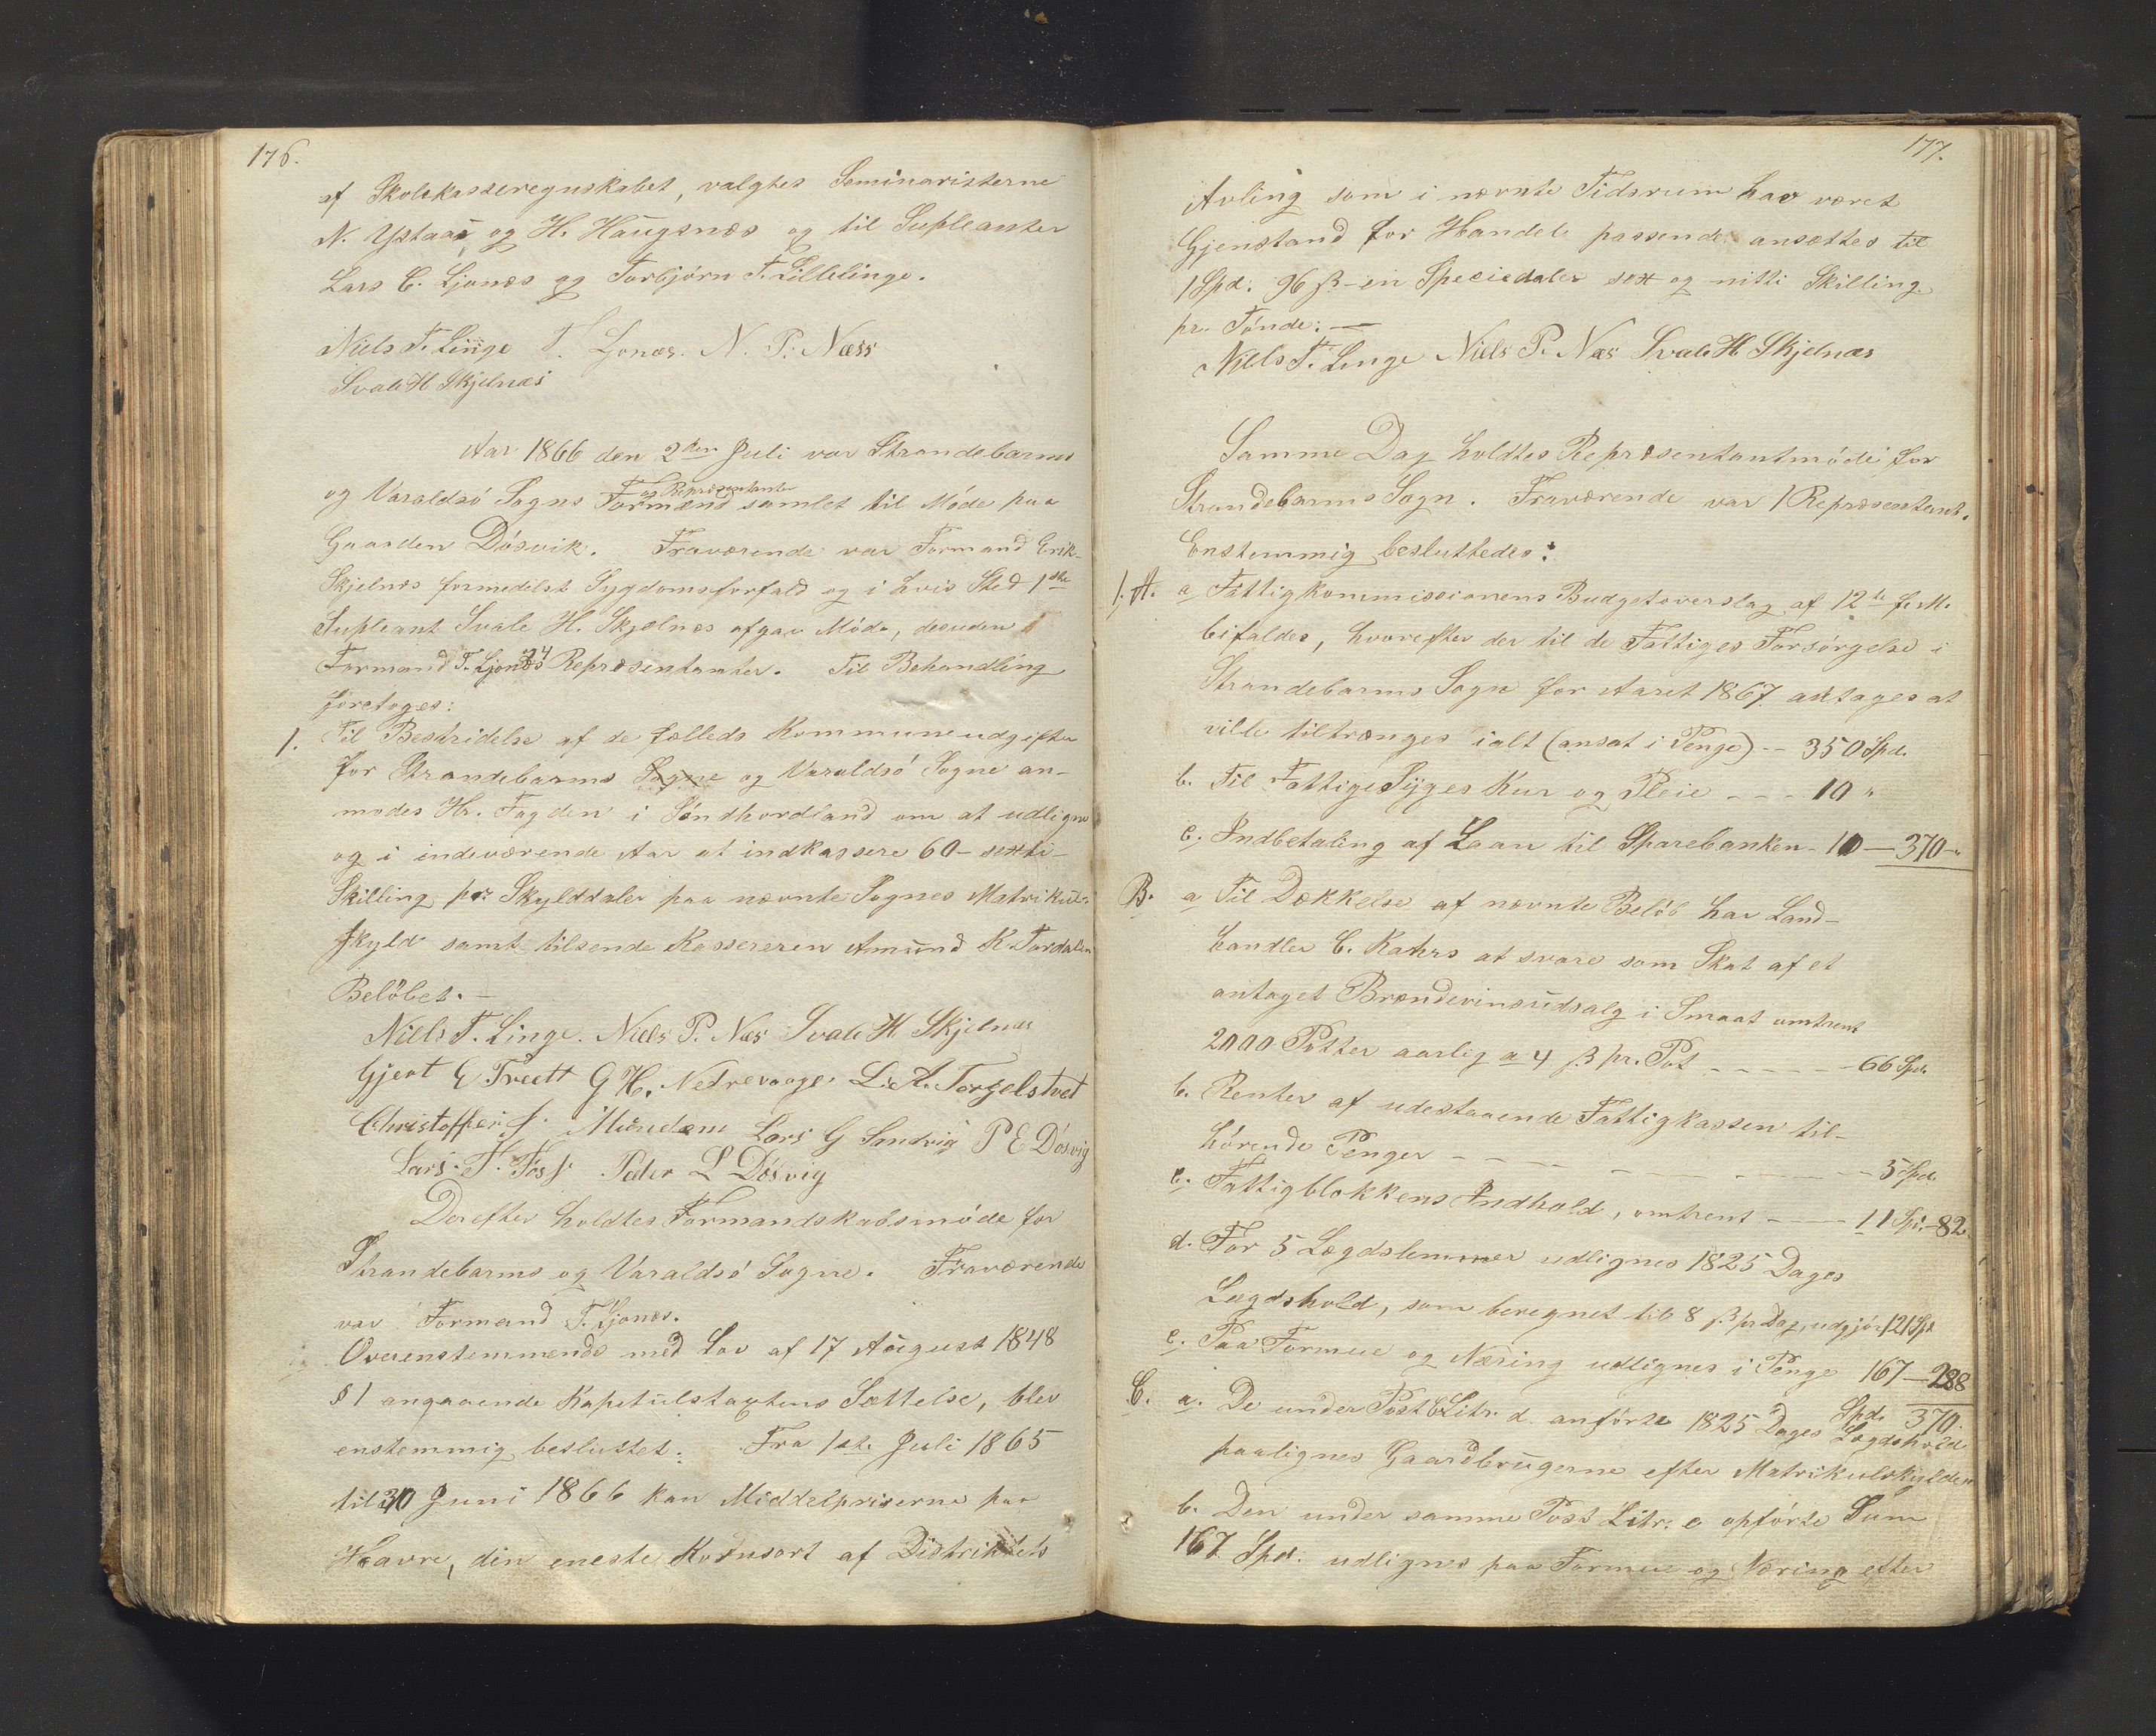 176.
af Skolekasseregnskabet, valgtes Seminaristerne
N. Ystaas og H. Haugsnæs og til Supleanter
Lars C. Ljonæs og Torbjörn T. Lillelinge.
Niels T. Linge T. Ljonæs. N. P. Næss
Svale H Skjelnæs
Aar 1866 den 2den Juli var Strandebarms
og Varaldsö Sogns Formænd og Repræsentanter samlet til Möde paa
Gaarden Dösvik. Fraværende var Formand Erik
Skjelnæs formedelst Sygdomsforfald og i hvis Sted 1ste
Supleant Svale H. Skjælnæs afgav Möde, desuden
Formand T. Ljonæs 24 Repræsentanter. Til Behandling
foretoges:
1. Til Bestridelse af de fælleds Kommuneudgifter
for Strandebarms Sogne og Varaldsö Sogne an-
modes Hr. Fogden i Söndhordland om at udligne
og i indeværende Aar at indkassere 60 - sexti -
Skilling pr. Skylddaler paa nævnte Sognes Matrikul-
skyld samt tilsende Kassereren Amund K. Tordalen
Belöbet. -
Niels T. Linge. Niels P. Næs Svale H Skjelnæs
Gjert E Tveett G H. Netrevaage. L. A. Torgelstvet
Christoffer J. Mundem Lars G Sandvig P E Dösvig
Lars. T. Foss. Peder L Dösvig
Derefter holdtes Formandskabsmöde for
Strandebarms og Varaldsö Sogne. Fraværende
var Formand T. Ljonæs.
Overenstemmende med Lov af 17 August 1848
§ 1 angaaende Kapetulstaxtens Sættelse, blev
enstemmig besluttet: Fra 1ste Juli 1865
til 30 Juni 1866 kan Middelpriserne paa
Havre, den eneste Kornsort af Distriktets
177.
Avling som i nævnte Tidsrum har været
Gjenstand for Handel passende ansættes til
1 Spd. 96 ß - en Speciedaler sex og nitti Skilling
pr. Tönde. -
Niels T. Linge Niels P. Næs Svale H Skjelnæs
Samme Dag holdtes Repræsentantmöde for
Strandebarms Sogn. Fraværende var 1 Repræsentant.
Enstemmig besluttedes:
1. A. a Fattigkommissionens Budgetoverslag af 12te f. M.
bifaldes, hvorefter der til de Fattiges Forsörgelse i
Strandebarms Sogn for Aaret 1867 antages at
ville tiltrænges ialt (ansat i Penge) -- 350 Spd.
b. Til Fattige Syges Kur og Pleie - - - 10 "
c. Indbetaling af Laan til Sparebanken - 10 - 370 - "
B. a Til Dækkelse af nævnte Belöb har Land-
handler C. Kahrs at svare som Skat af et
antaget Brændevinsudsalg i Smaat omtrent
2000 Potter aarlig a 4 ß pr. Pot - - - - - - 66 Spd.
b. Renter af udestaaende Fattigkassen til-
hörende Penger - - - - - - - - 5 Spd.
c. Fattigblokkens Indhold, omtrent - - - 11 Spd. - 82
d. For 5 Lægdslemmer udlignes 1825 Dages
Lægdshold, som beregnet til 8 ß pr Dag, udgjör 121 Spd
e. Paa Formue og Næring udlignes i Penge 167 - 288
Spd. 370.
C. a. De under Post B Litr. d. anförte 1825 Dages Lægdshold
paalignes Gaardbrugerne efter Matrikulskylden
b. Den under samme Post Litr. e opförte Sum
167 Spd. udlignes paa Formue og Næring efter